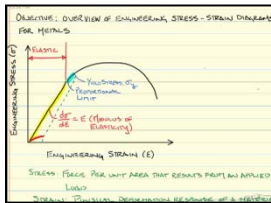 OBJECTIVE: OVERVIEW OF ENGINEERING STRESS-STRAIN DIAGRAMS
FOR METALS
ELASTIC
ENGINEERING STRESS (σ)
YIELD STRESS, σy
PROPORTIONAL
LIMIT
dσ/dE = E (MODULUS OF
ELASTICITY)
ENGINEERING STRAIN (E)
STRESS: FORCE PER UNIT AREA THAT RESULTS FROM AN APPLIED
LOAD
STRAIN: PHYSICAL DEFORMATION RESPONSE OF A MATERIAL